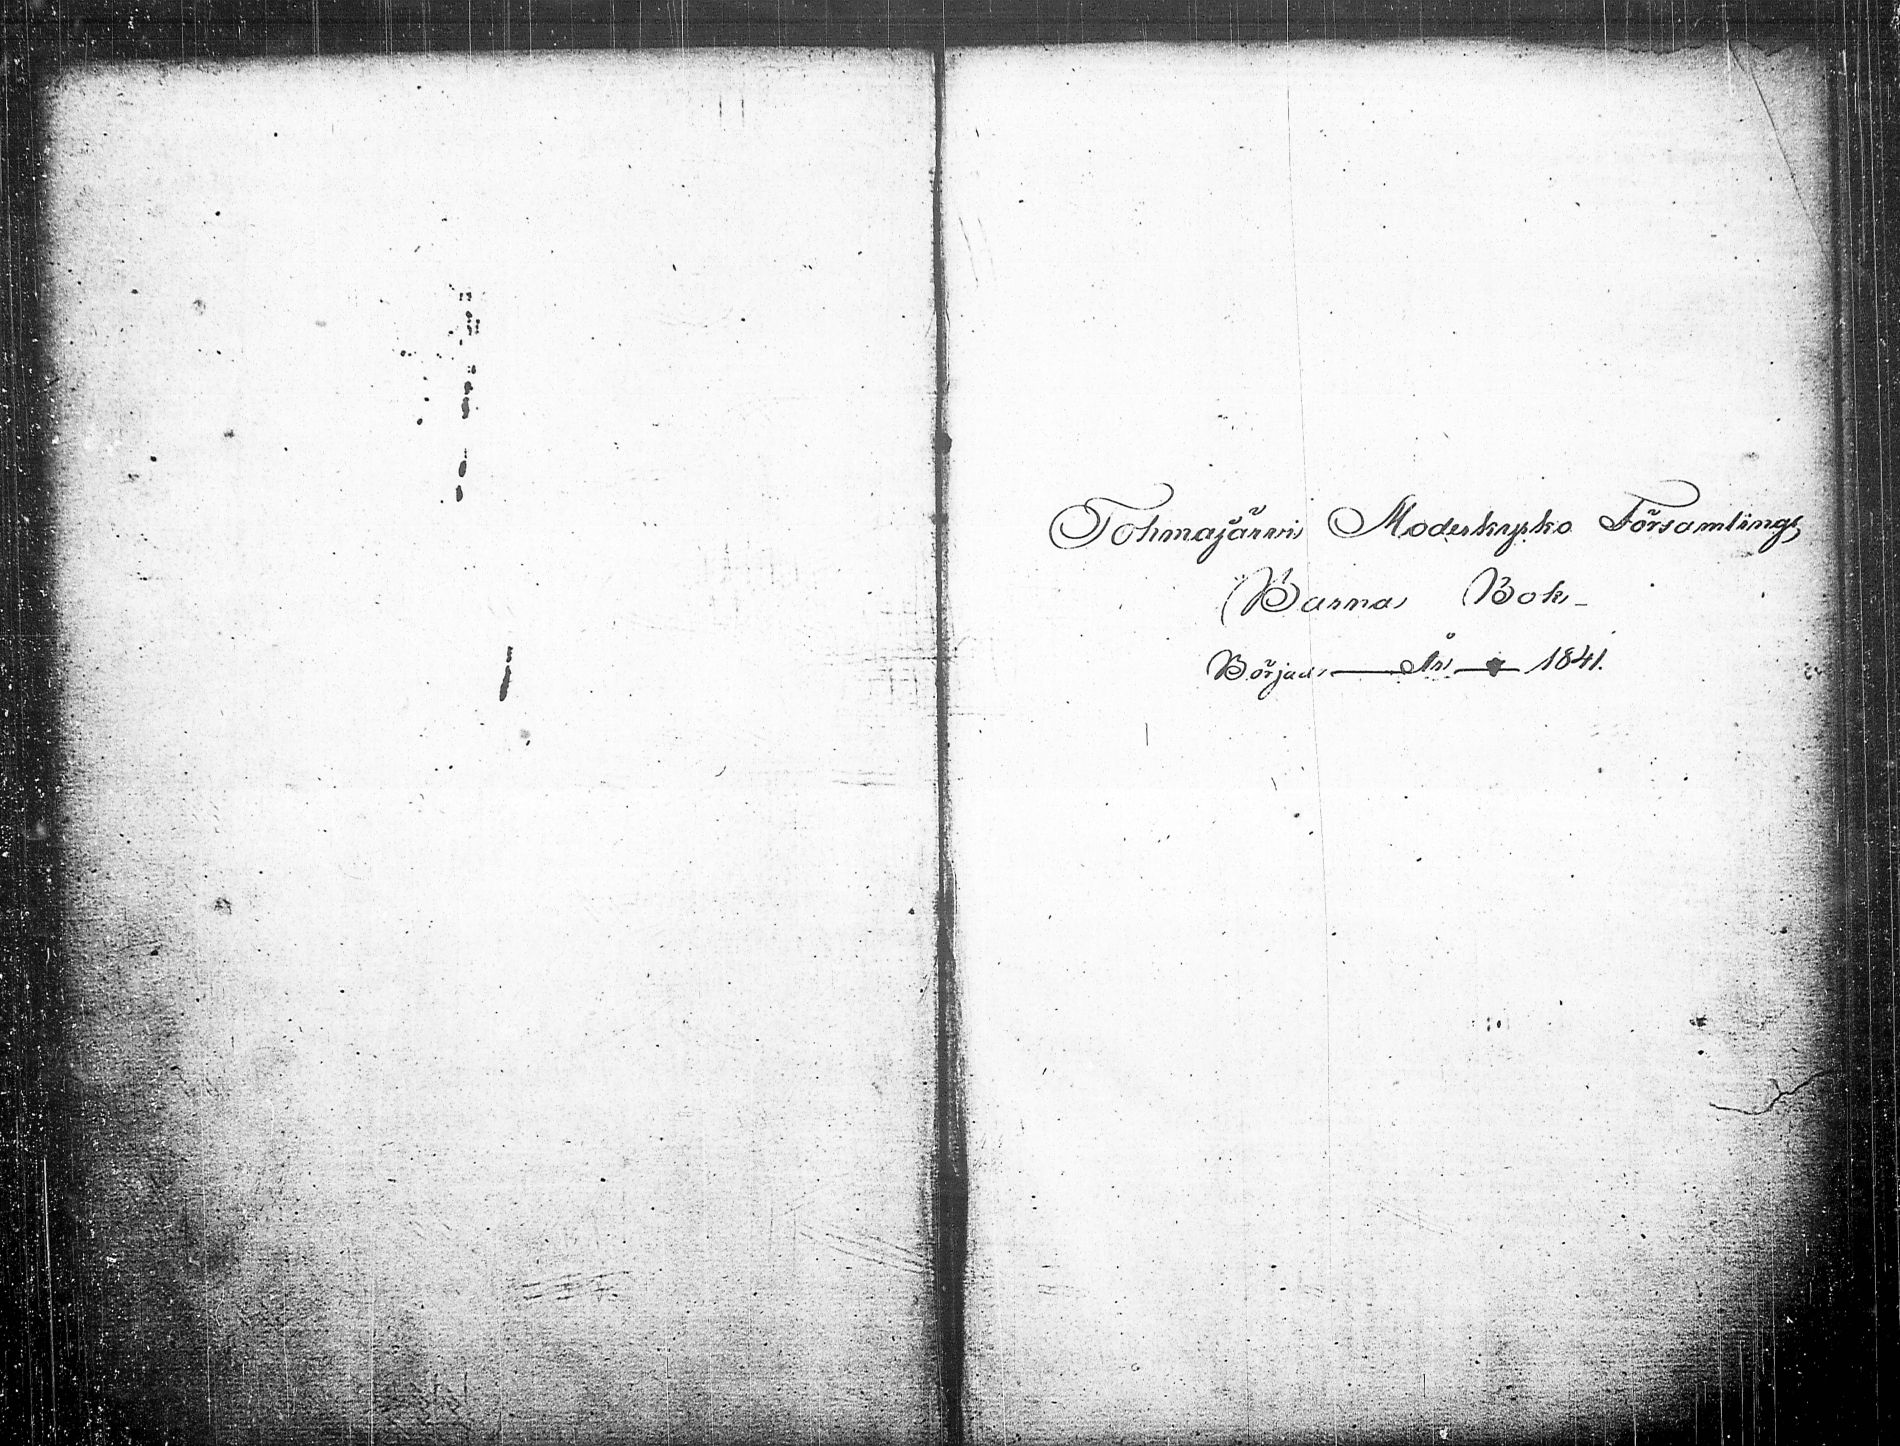 Tohmajärvi Moderkyrko Församlings
Barna Bok
Börjad År 1841.